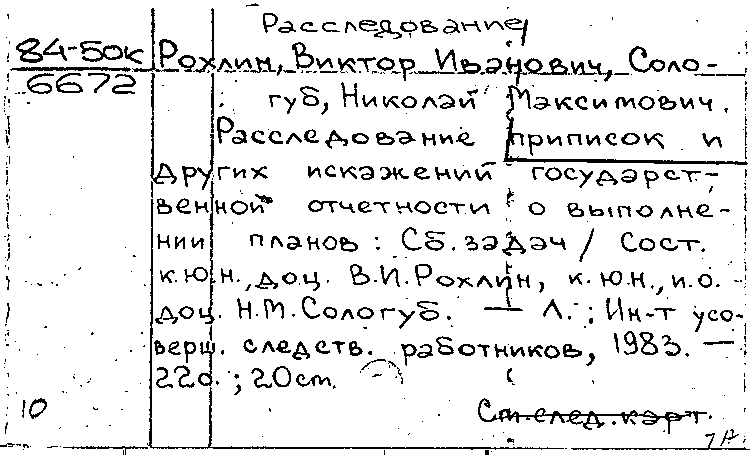 Расследование
84-50к Рохлин, Виктор Иванович, Соло-
6672 губ, Николай Максимович.
Расследование приписок и
других искажений государст-
венной отчетности о выполне-
нии планов : Сб. задач / Сост.
к.ю.н., доц. В.И. Рохлин, к.ю.н., и.о.
доц. Н.М. Сологуб. — Л. : Ин-т усо-
верш. следств. работников, 1983. —
22с. ; 20см.
10 См. след. карт.